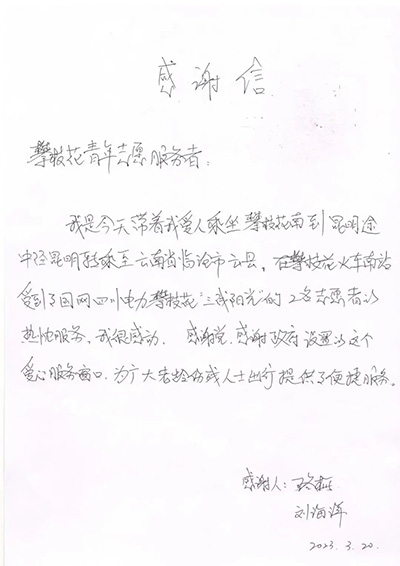 感谢信
攀枝花青年志愿服务者：
我是今天带着我爱人乘坐攀枝花南到昆明途
中经昆明转乘至云南省临沧市云县，在攀枝花火车南站
受到了国网四川电力攀枝花“三线阳光”的2名志愿者的
热忱服务，我很感动。感谢党，感谢政府设置的这个
爱心服务窗口，为广大老龄伤残人士出行提供了便捷服务。
感谢人：
刘海洋
2023.3.20.